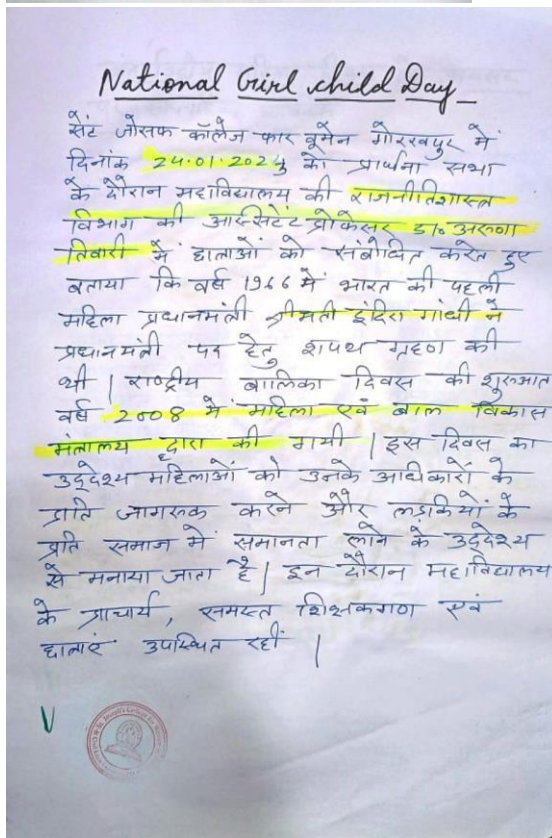 National Girl child Day
सेंट जोसफ कॉलेज फार वूमेन गोरखपुर में
दिनांक 24.01.2024 को प्रार्थना सभा
के दौरान महाविद्यालय की राजनीतिशास्त्र
विभाग की आस्सिटेंट प्रोफेसर डा० अरुणा
तिवारी में छात्राओं को संबोधित करते हुए
बताया कि वर्ष 1966 में भारत की पहली
महिला प्रधानमंत्री श्रीमती इंदिरा गांधी ने
प्रधानमंत्री पद हेतु शपथ ग्रहण की
थी | राष्ट्रीय बालिका दिवस की शुरुआत
वर्ष 2008 में महिला एवं बाल विकास
मंत्रालय द्वारा की गयी | इस दिवस का
उद्देश्य महिलाओं को उनके अधिकारों के
प्रति जागरुक करने और लड़कियों के
प्रति समाज में समानता लाने के उद्देश्य
से मनाया जाता है | इन दौरान महाविद्यालय
के प्राचार्य, समस्त शिक्षकगण एवं
छात्राएं उपस्थित रहीं |